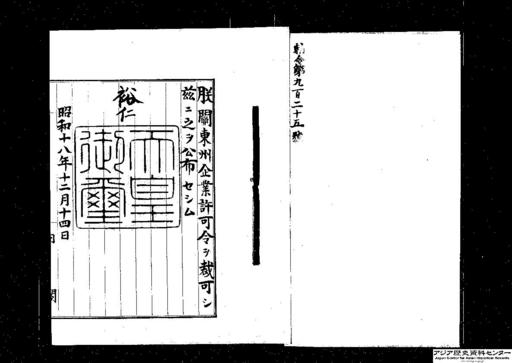 勅令第九百二十五號
朕關東州企業許可令ヲ裁可シ
茲ニ之ヲ公布セシム
裕仁
天皇
御璽
昭和十八年十二月十四日
アジア歴史資料センター
Japan Center for Asian Historical Records